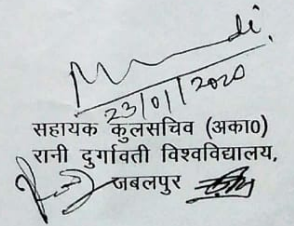 23/01/2020
सहायक कुलसचिव (अका0)
रानी दुर्गावती विश्वविद्यालय,
जबलपुर